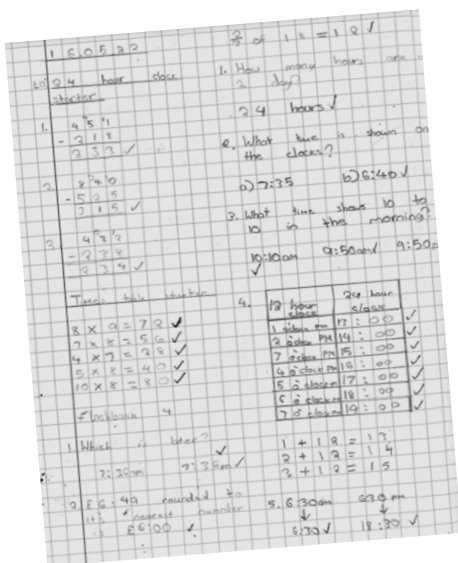 16.05.22
LO 24 hour clock
starter
1.
451
- 218
233 ✓
2.
840
- 525
315 ✓
3.
- 238
234 ✓
Times table starter
8 × 9 = 72 ✓
7 × 8 = 56 ✓
4 × 7 = 28 ✓
5 × 8 = 40 ✓
10 × 8 = 80 ✓
flashback 4
1. Which is later?
7:35am 7:35pm ✓
2. £6.49 rounded to
nearest number
£6:00 ✓
of 18 = 12 ✓
1. How many hours are
day?
24 hours ✓
2. What time is shown on
the clocks?
a) 7:35 b) 6:40 ✓
3. What time shows 10 to
10 in the morning?
10:10am 9:50am ✓ 9:50p
✓
4.
12 hour clock 24 hour clock
1 o'clock PM 13:00 ✓
2 o'clock PM 14:00 ✓
3 o'clock PM 15:00 ✓
4 o'clock PM 16:00 ✓
5 o'clock 17:00 ✓
6 o'clock 18:00 ✓
7 o'clock 19:00 ✓
1 + 12 = 13
2 + 12 = 14
3 + 12 = 15
5. 6:30am 6:30 pm
↓ ↓
6:30 ✓ 18:30 ✓